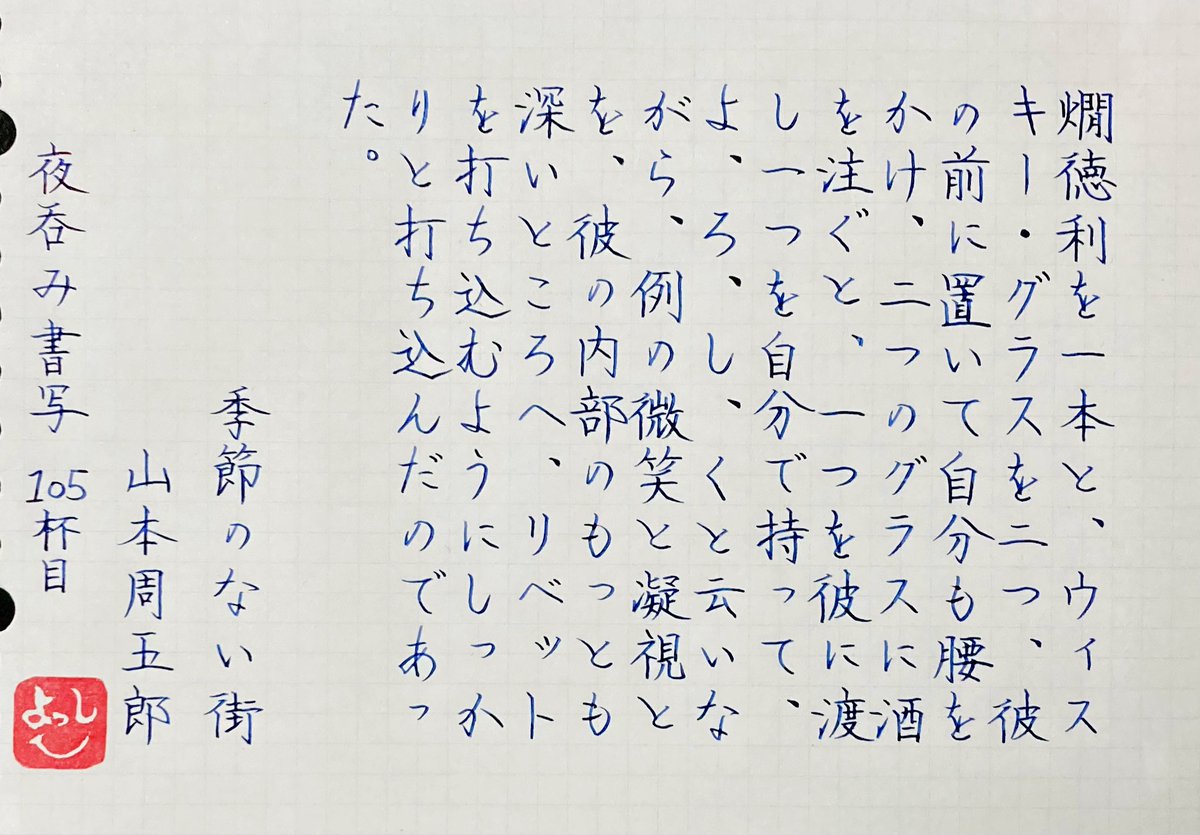 燗徳利を一本と、ウィス
キー・グラスを二つ、彼
の前に置いて自分も腰を
かけ、二つのグラスに酒
を注ぐと、一つを彼に渡
し一つを自分で持って、
よ、ろ、し、くと云いな
がら、例の微笑と凝視と
を、彼の内部のもっとも
深いところへ、リベット
を打ち込むようにしっか
りと打ち込んだのであっ
た。
季節のない街
山本周五郎
夜呑み書写 105杯目
よっし